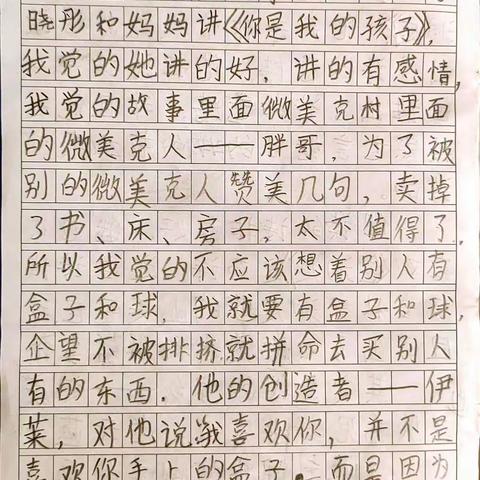 晓彤和妈妈讲《你是我的孩子》,
我觉的她讲的好，讲的有感情,
我觉的故事里面微美克村里面
的微美克人——胖哥，为了被
别的微美克人赞美几句，卖掉
了书、床、房子，太不值得了,
所以我觉的不应该想着别人有
盒子和球，我就要有盒子和球,
企望不被排挤就拼命去买别人
有的东西．他的创造者——伊
莱，对他说我喜欢你，并不是
喜欢你手上的盒子。而是因为